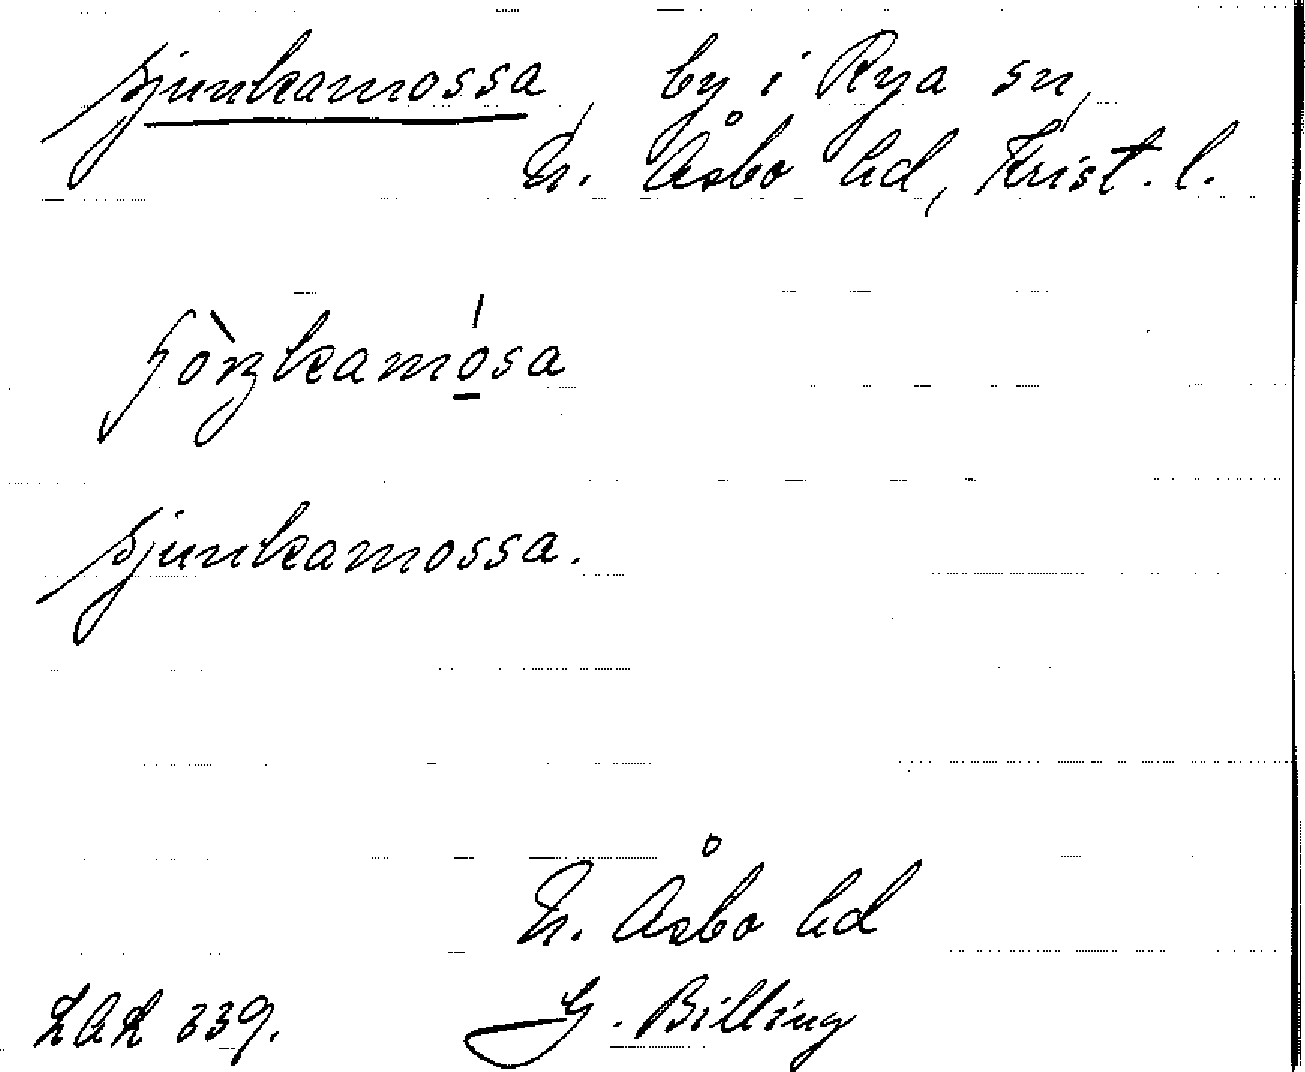 Sjunkamossa, by i Rya sn,
N. Åsbo hd, Krist. l.
sjunkamossa.
N. Åsbo hd
LAL 339. G. Billing